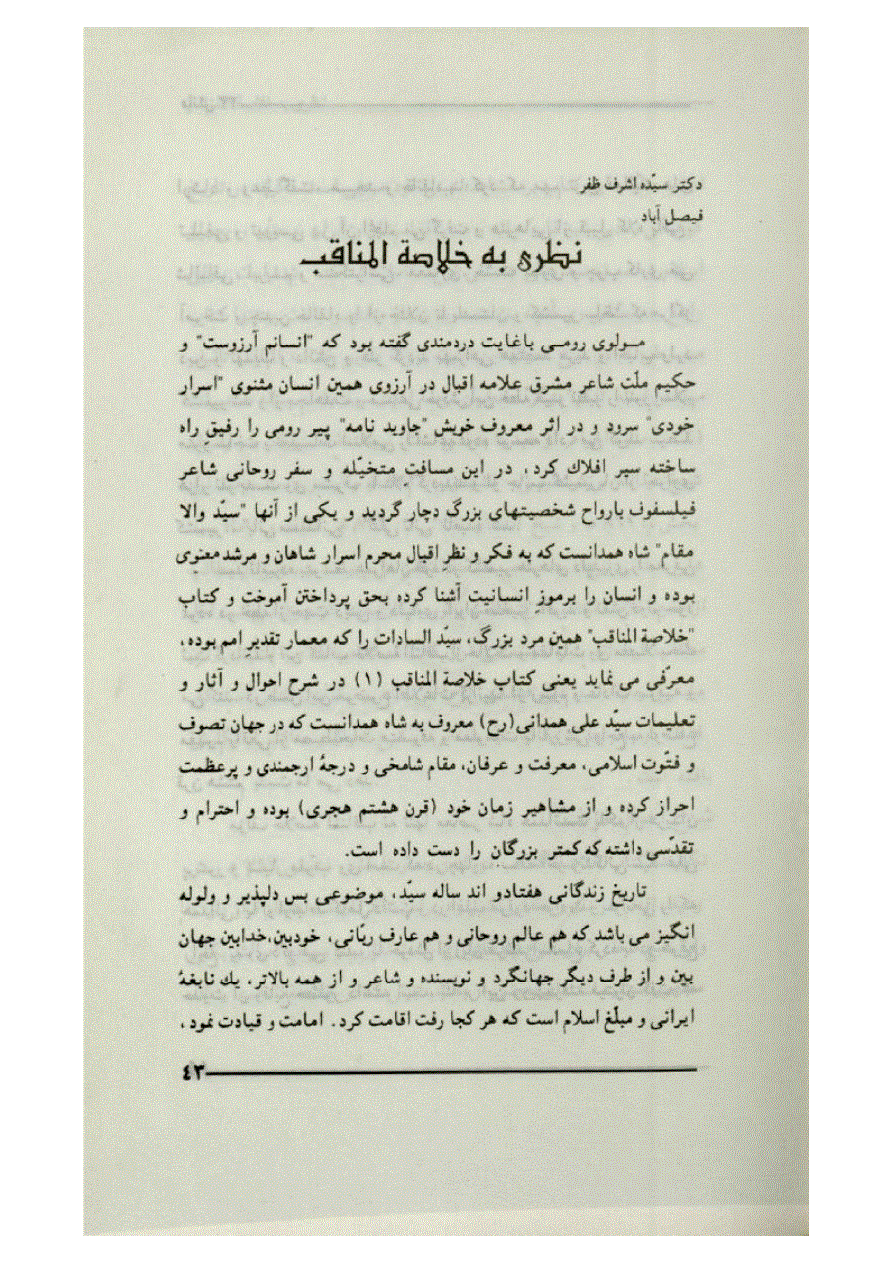 دکتر سیّده اشرف ظفر
فیصل آباد
نظری به خلاصة المناقب
مـولوی رومـی باغایت دردمندی گفته بود که "انسانم آرزوست" و
حکیم ملّت شاعر مشرق علامه اقبال در آرزوی همین انسان مثنوی "اسرار
خودی" سرود و در اثر معروف خویش "جاوید نامه" پیر رومی را رفیق راه
ساخته سیر افلاك کرد، در این مسافت متخیّله و سفر روحانی شاعر
فیلسوف بارواح شخصیتهای بزرگ دچار گردید و یکی از آنها "سیّد والا
مقام" شاه همدانست که به فکر و نظر اقبال محرم اسرار شاهان و مرشد معنوی
بوده و انسان را برموز انسانیت آشنا کرده بحق پرداختن آموخت و کتاب
"خلاصة المناقب" همین مرد بزرگ، سیّد السادات را که معمار تقدیر امم بوده،
معرّفی می نماید یعنی کتاب خلاصة المناقب (۱) در شرح احوال و آثار و
تعلیمات سیّد علی همدانی(رح) معروف به شاه همدانست که در جهان تصوف
و فتّوت اسلامی، معرفت و عرفان، مقام شامخی و درجهٔ ارجمندی و پرعظمت
احراز کرده و از مشاهیر زمان خود (قرن هشتم هجری) بوده و احترام و
تقدّسی داشته که کمتر بزرگان را دست داده است.
تاریخ زندگانی هفتادو اند ساله سیّد، موضوعی بس دلپذیر و ولوله
انگیز می باشد که هم عالم روحانی و هم عارف ربّانی، خودبین،خدابین جهان
بین و از طرف دیگر جهانگرد و نویسنده و شاعر و از همه بالاتر، یك نابغهٔ
ایرانی و مبلّغ اسلام است که هر کجا رفت اقامت کرد. امامت و قیادت نمود،
٤٣